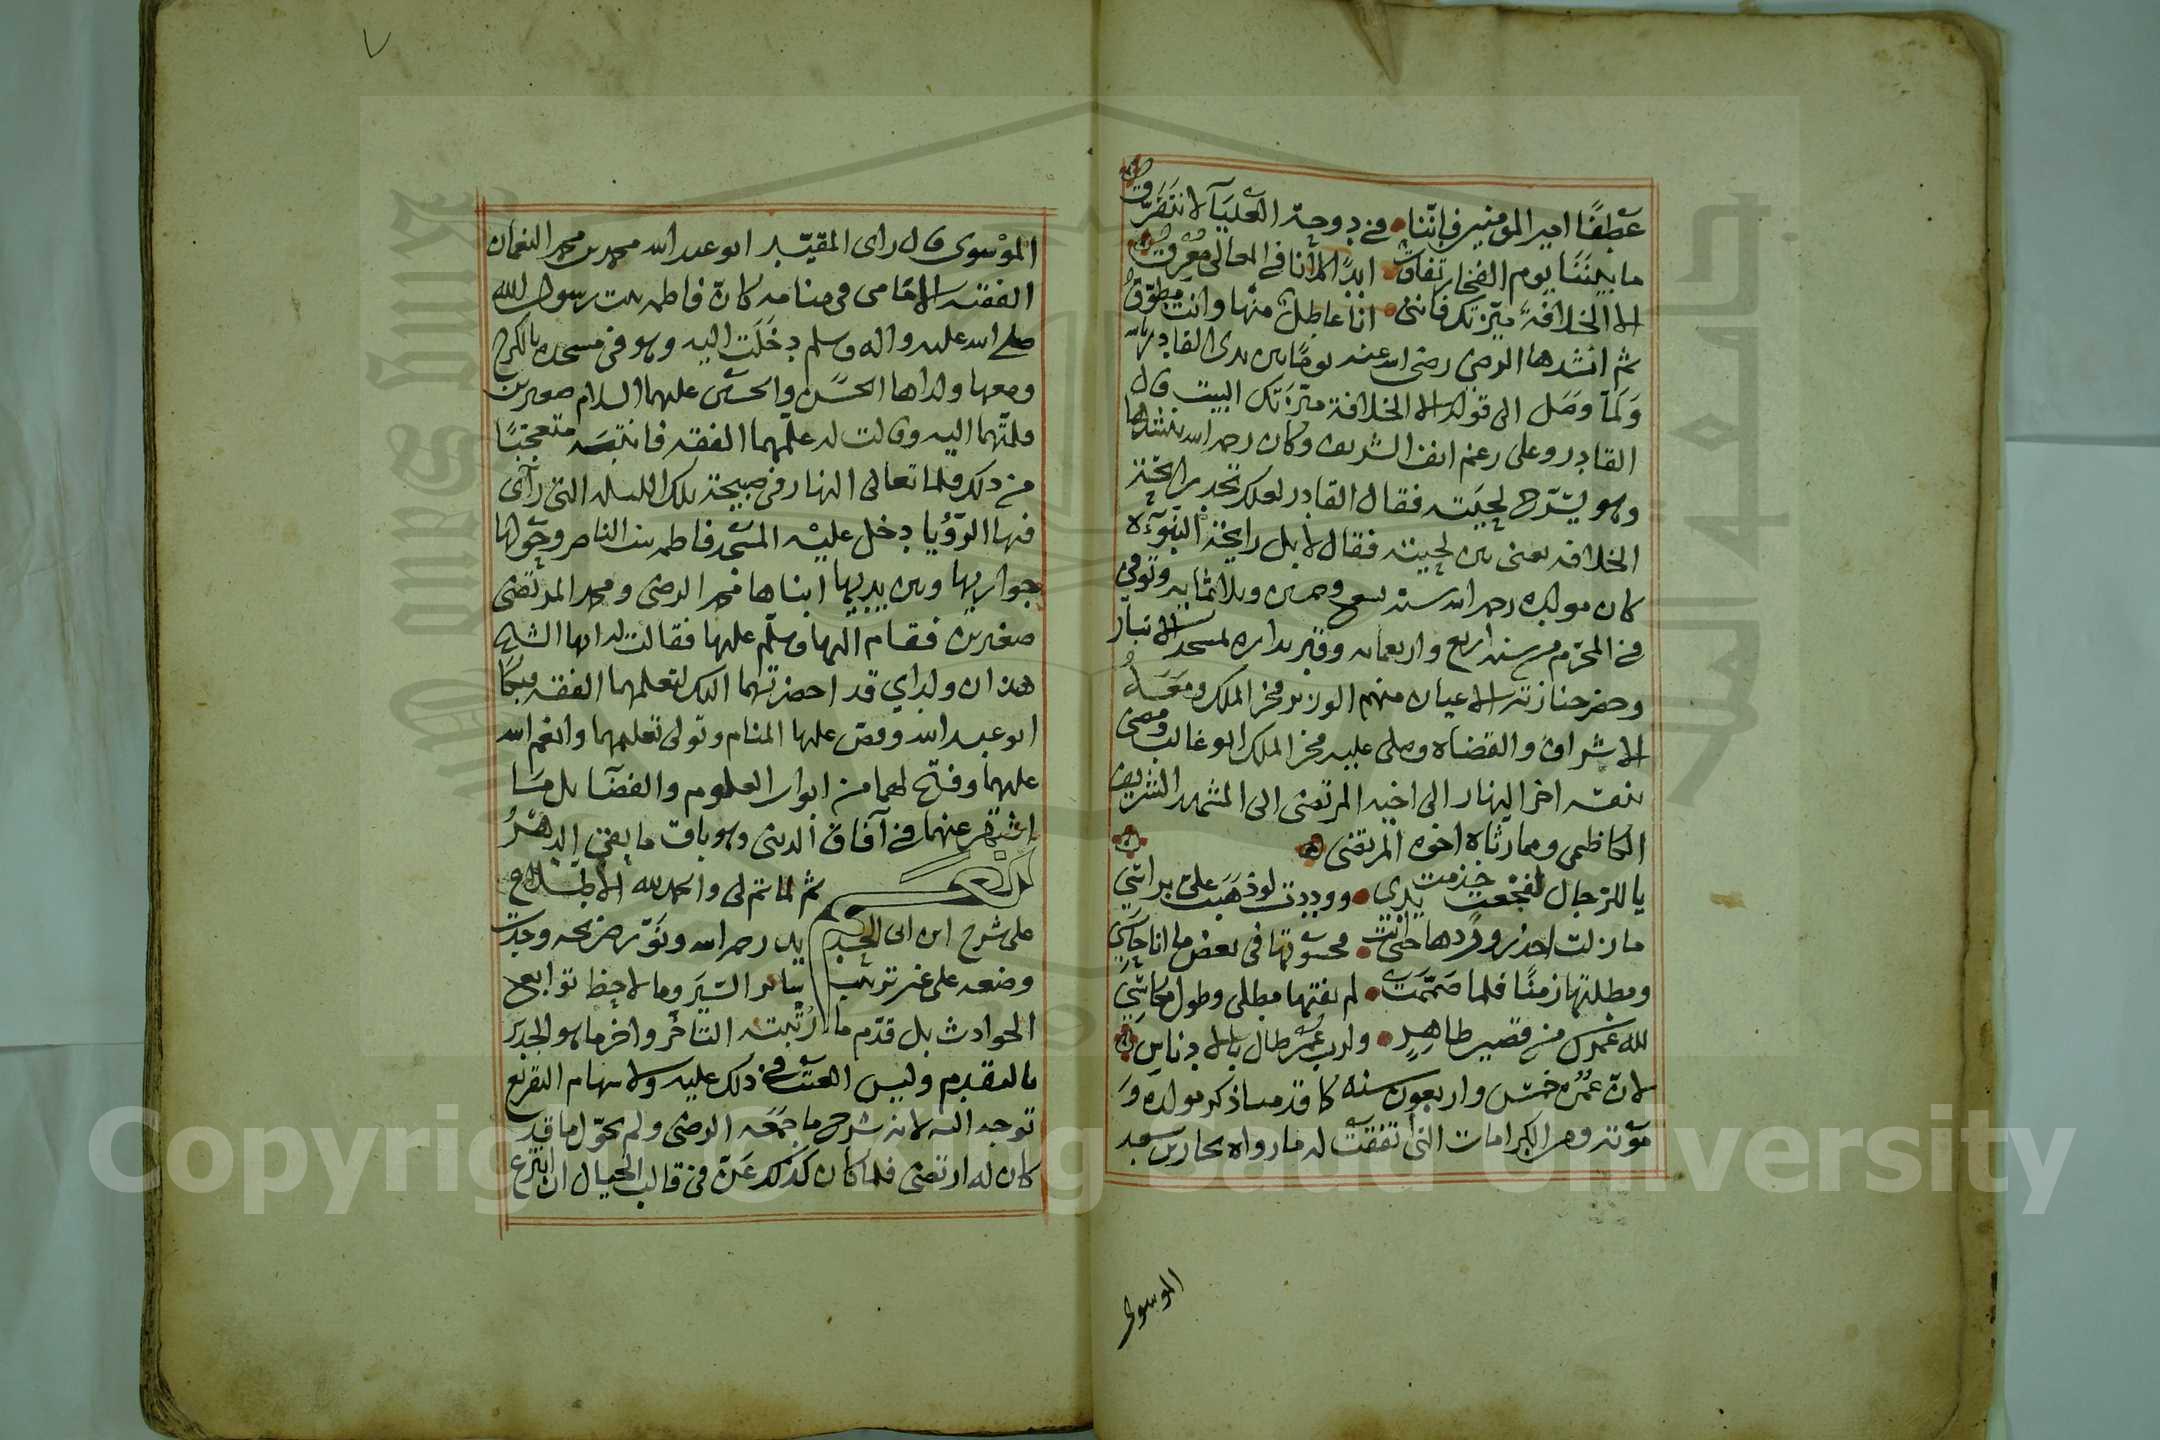 عَطفًا امير المومنين فاِنّنا • في دوحة العَليآ لا نتَفَرَّق
ما بيننَا يوم الفخار تفاوُت • ابدًا كلانا في المعالى مُعرِق
الا الخلافةَ ميّزتك فانني • انا عاطل منها وانت مطوّق
ثم انشدها الرضي رضى الله عنه يومًا بين يدى القادر بالله
وَلمّا وصَل الى قوله الا الخلافة ميّزتك البيت قال
القادر وعلى رغم انف الشريف وكان رحمه الله ينشدها
وهو يسَرّح لحيَته فقال القادر لعلك تجد رايحة
الخلافه يعنى بين لحيته فقال لا بل رايحة النبوّة
كان مولده رحمه الله سنه تسع وخمسين وثلاثمايه وتوفي
في المحرّم من سنه اربع واربعمايه وقبر بداره لمسجد الانبار
وحضر جنازته الاعيان منهم الوزير فخر الملك ومعَه
الاشراف والقضاه وصلى عليه فخر الملك ابو غالب ومضى
بنفسه اخر النهار الى اخيه المرتضى الى المشهد الشريف
الكاظمى ومما رثاه اخوه المرتضى
يا للرجال لفجْعت جذمت يدي • ووددت لو ذهَبت علىّ براسي
ما زلت احذر وِردها حتى اتت • فحسَوتها فى بعض ما انا حاسي
ومطلتها زمنًا فلما صَمّمَت • لم يفتها مطلى وطول مكاسي
لله عمرك من قصير طاهِرٍ • ولرب عُمر طال بالادناسِ
لان عُمُره خمسٌ واربعون سنه كما قدمنا ذكر مولده وَ
مَوته ومن الكرامات التى اتفقت له ما رواه فخار بن معد
الموسوى
٧
الموْسوى قال راى المفيد ابو عبد الله محمد بن محمد النعمان
الفقيه الامامى في منامه كانّ فاطمه بنت رسول الله
صلى الله عليه واله وسلم دخَلَت اليه وهو في مسجده بالكرخ
ومعها ولداها الحسَن والحسَين عليهما السلام صغيرين
فسلمتهما اليه وقالت له علمهما الفقه فانتبَه متعجبًا
من ذلك فلما تعالى النهار في صبيحة تلك الليله التى رآى
فيها الرّؤيا دخل عليْه المسَجد فاطمه بنت الناصر وحَولها
جواريها وبين يديها ابناها محمد الرضى ومحمد المرتضى
صغيرين فقام اليها وسلّم عليها فقالت له ايها الشيخ
هذان ولداي قد احضرتهما اليك لتعلمهما الفقه فبكا
ابو عبد الله وقص عليها المنام وتولى تعليمهما وانعم الله
عليهما وفتح لهما من ابواب العلوم والفضآيل مَا
اشتَهر عنهما في آفاق الدنى وهو باقٍ ما بقي الدهْرُ
ثم لما تم لى والحمد لله الاطلاع
على شرح ابن ابى الحديد رحمه الله ونَوّر ضريحه وجدت
وضعه على غير ترتيب سائر السّيَر وما لاحظ توابع
الحوادث بل قدّم ما رُتبته التاخر واخر ما هو الجدير
بالتقديم وليس العتب في ذلك عليه ولا سهام التقريع
توجه اليه لانه شرح ما جمَعَه الرضى ولم يحوّل ما قد
كان له ارتضى فلما كان كذلك عَنّ في قالب الخيال ان انتزع